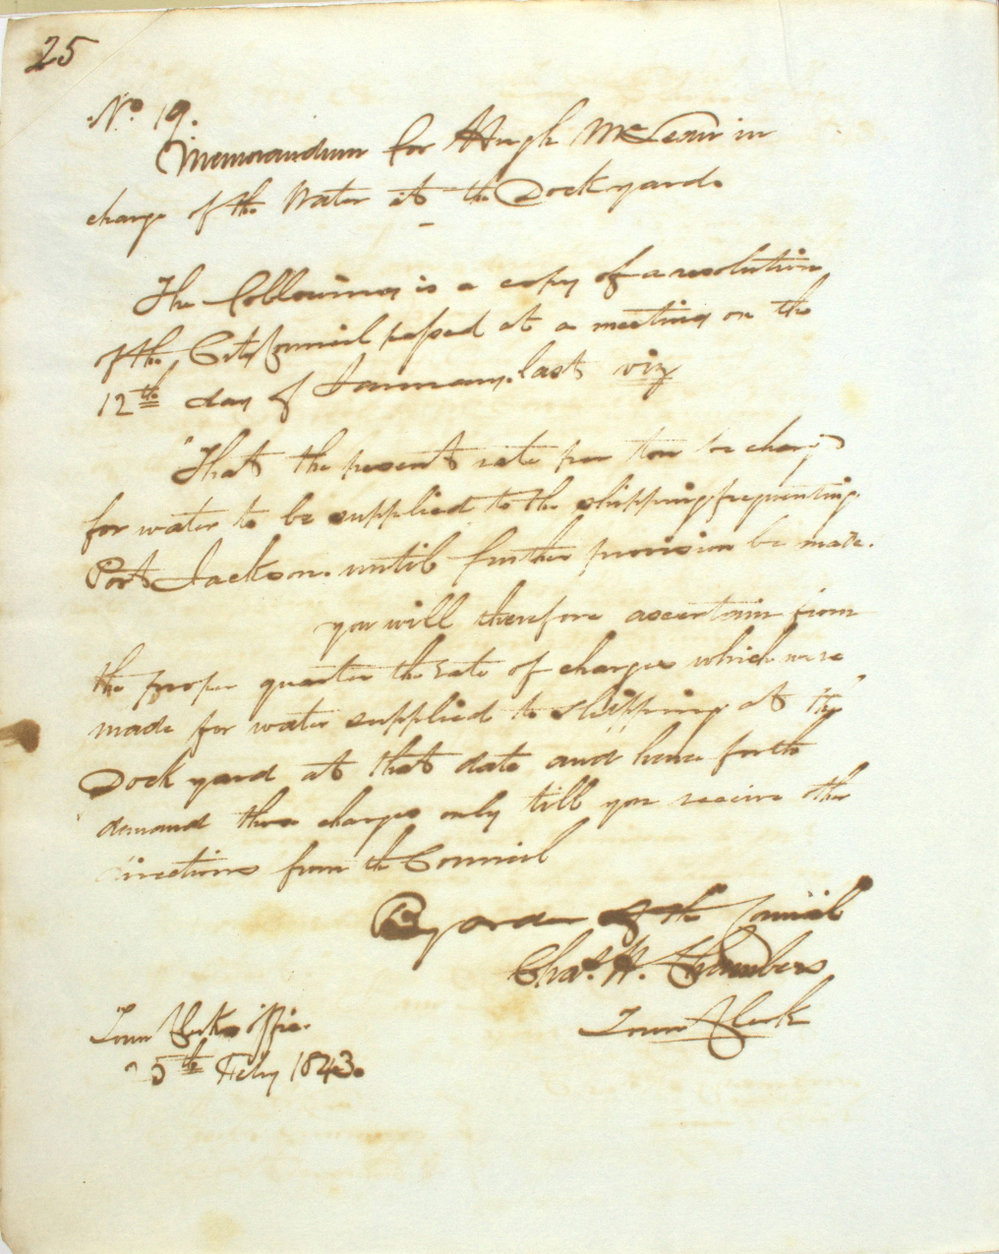 25
No 19.
Memorandum for Hugh McLean in
charge of the Water at the Dockyard.
The following is a copy of a resolution
of the City Council passed at a meeting on the
12th day of January last viz
"That the present rate per ton be charged
for water to be supplied to the shipping frequenting
Port Jackson until further provision be made.
you will therefore ascertain from
the proper quarter the rate of charges which were
made for water supplied to shipping at the
Dock yard at that date and hence forth
demand those charges only till you receive other
directions from the Council
By order of the Council
Chas. H. Chambers
Town Clerk
Town Clerks Office.
5th Feby 1843.